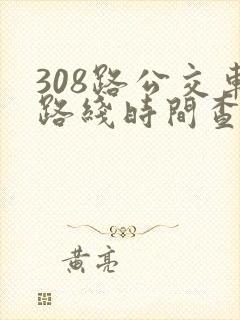 308路公交車
路綫時間查
黄亮